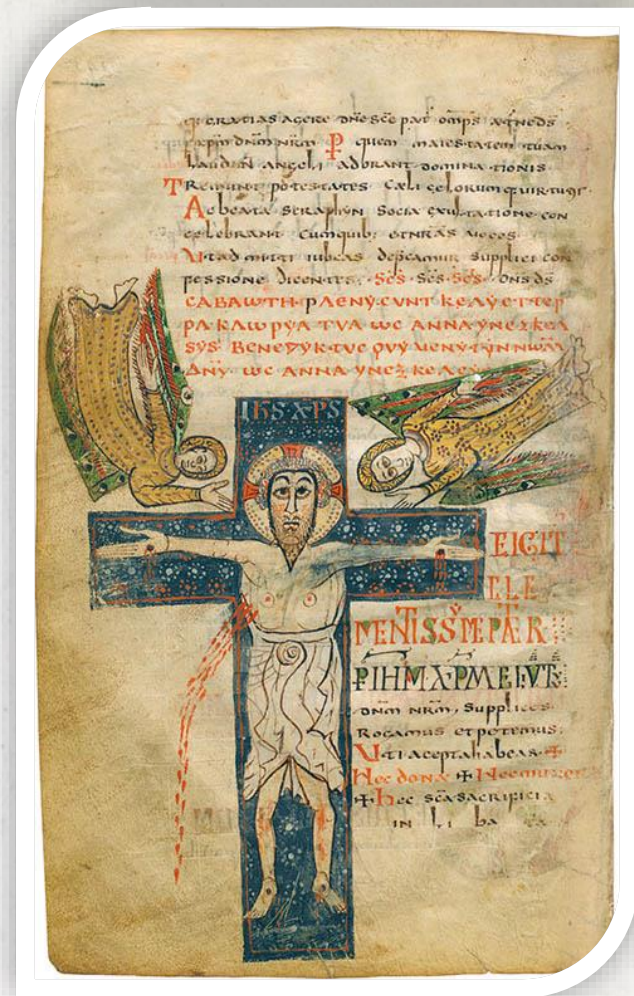 GRATIAS AGERE DNE SCE PAT OMPS
XPM DNM NRM P QUEM MAIESTATEM TUAM
LAUDANT ANGELI ADORANT DOMINATIONIS
TREMUNT POTESTATES CAELI CELORUMQ UIRTUTES
AC BEATA SERAPHYN SOCIA EXULTATIONE CON
CELEBRANT CUMQUIB ET NRAS UOCES
UT ADMITTI IUBEAS DEPCAMUR SUPPLICI CON
FESSIONE DICENTES SCS SCS SCS DNS DS
CABAWTH PLENY CVNT KELY ET TER
PA KLWPYA TVA WC ANNA YNEZKEL
SYS BENEDYKTVC QVY VENYT YN NWM
DNY WC ANNA YNEZ KELC
IHS XPS
EIGIT
ELE
MENTISSYME PATER
P IHM XPM
DNM NRM SUPPLICES
ROGAMUS ET PETEMUS
UTI ACEPTA HABEAS +
HEC DONA + HEC
+ HEC SCA SACRIFICIA
IN LI BA TA